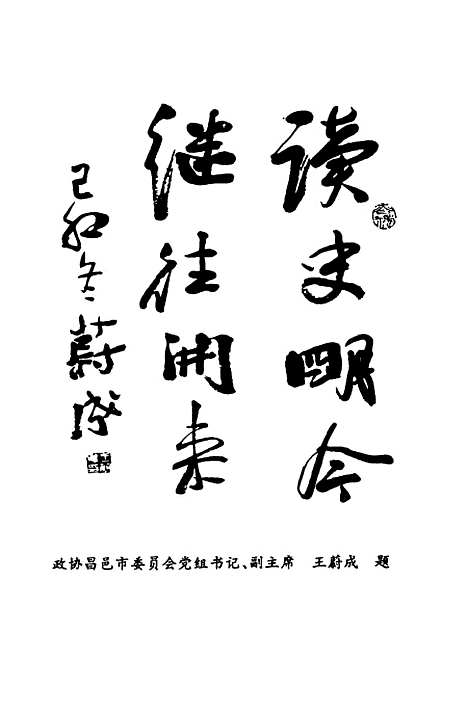 读史明今
继往开来
己卯冬 蔚成
政协昌邑市委员会党组书记、副主席 王蔚成 题